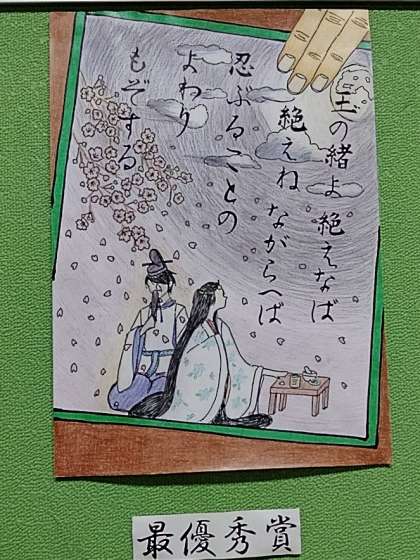 玉の緒よ 絶えなば
絶えね ながらへば
忍ぶることの
よわり
もぞする
最優秀賞